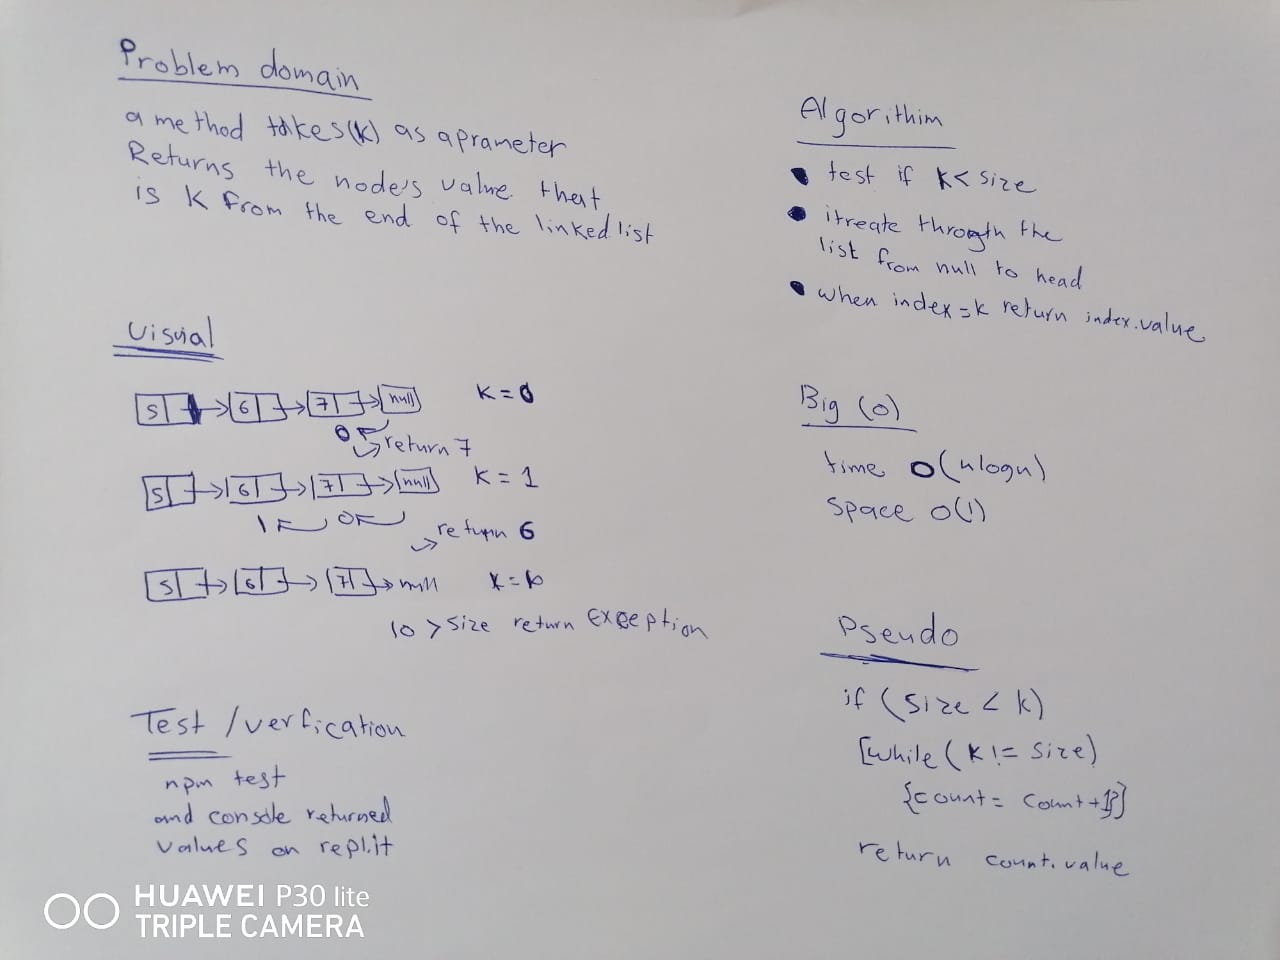 Problem domain
a method takes (k) as aprameter
Returns the node's value that
is k from the end of the linked list
Visual
5 6 7 null k = 0
0 return 7
5 6 7 null k = 1
1 0 return 6
5 6 7 null k = 10
10 > size return Exception
Test / verfication
npm test
and console returned
values on repl.it
Algorithim
test if k < size
itreate throgth the
list from null to head
when index = k return index.value
Big (O)
time O(nlogn)
space O(1)
Pseudo
if (size < k)
[while (k != size)
{count = count + 1}]
return count.value
HUAWEI P30 lite
TRIPLE CAMERA